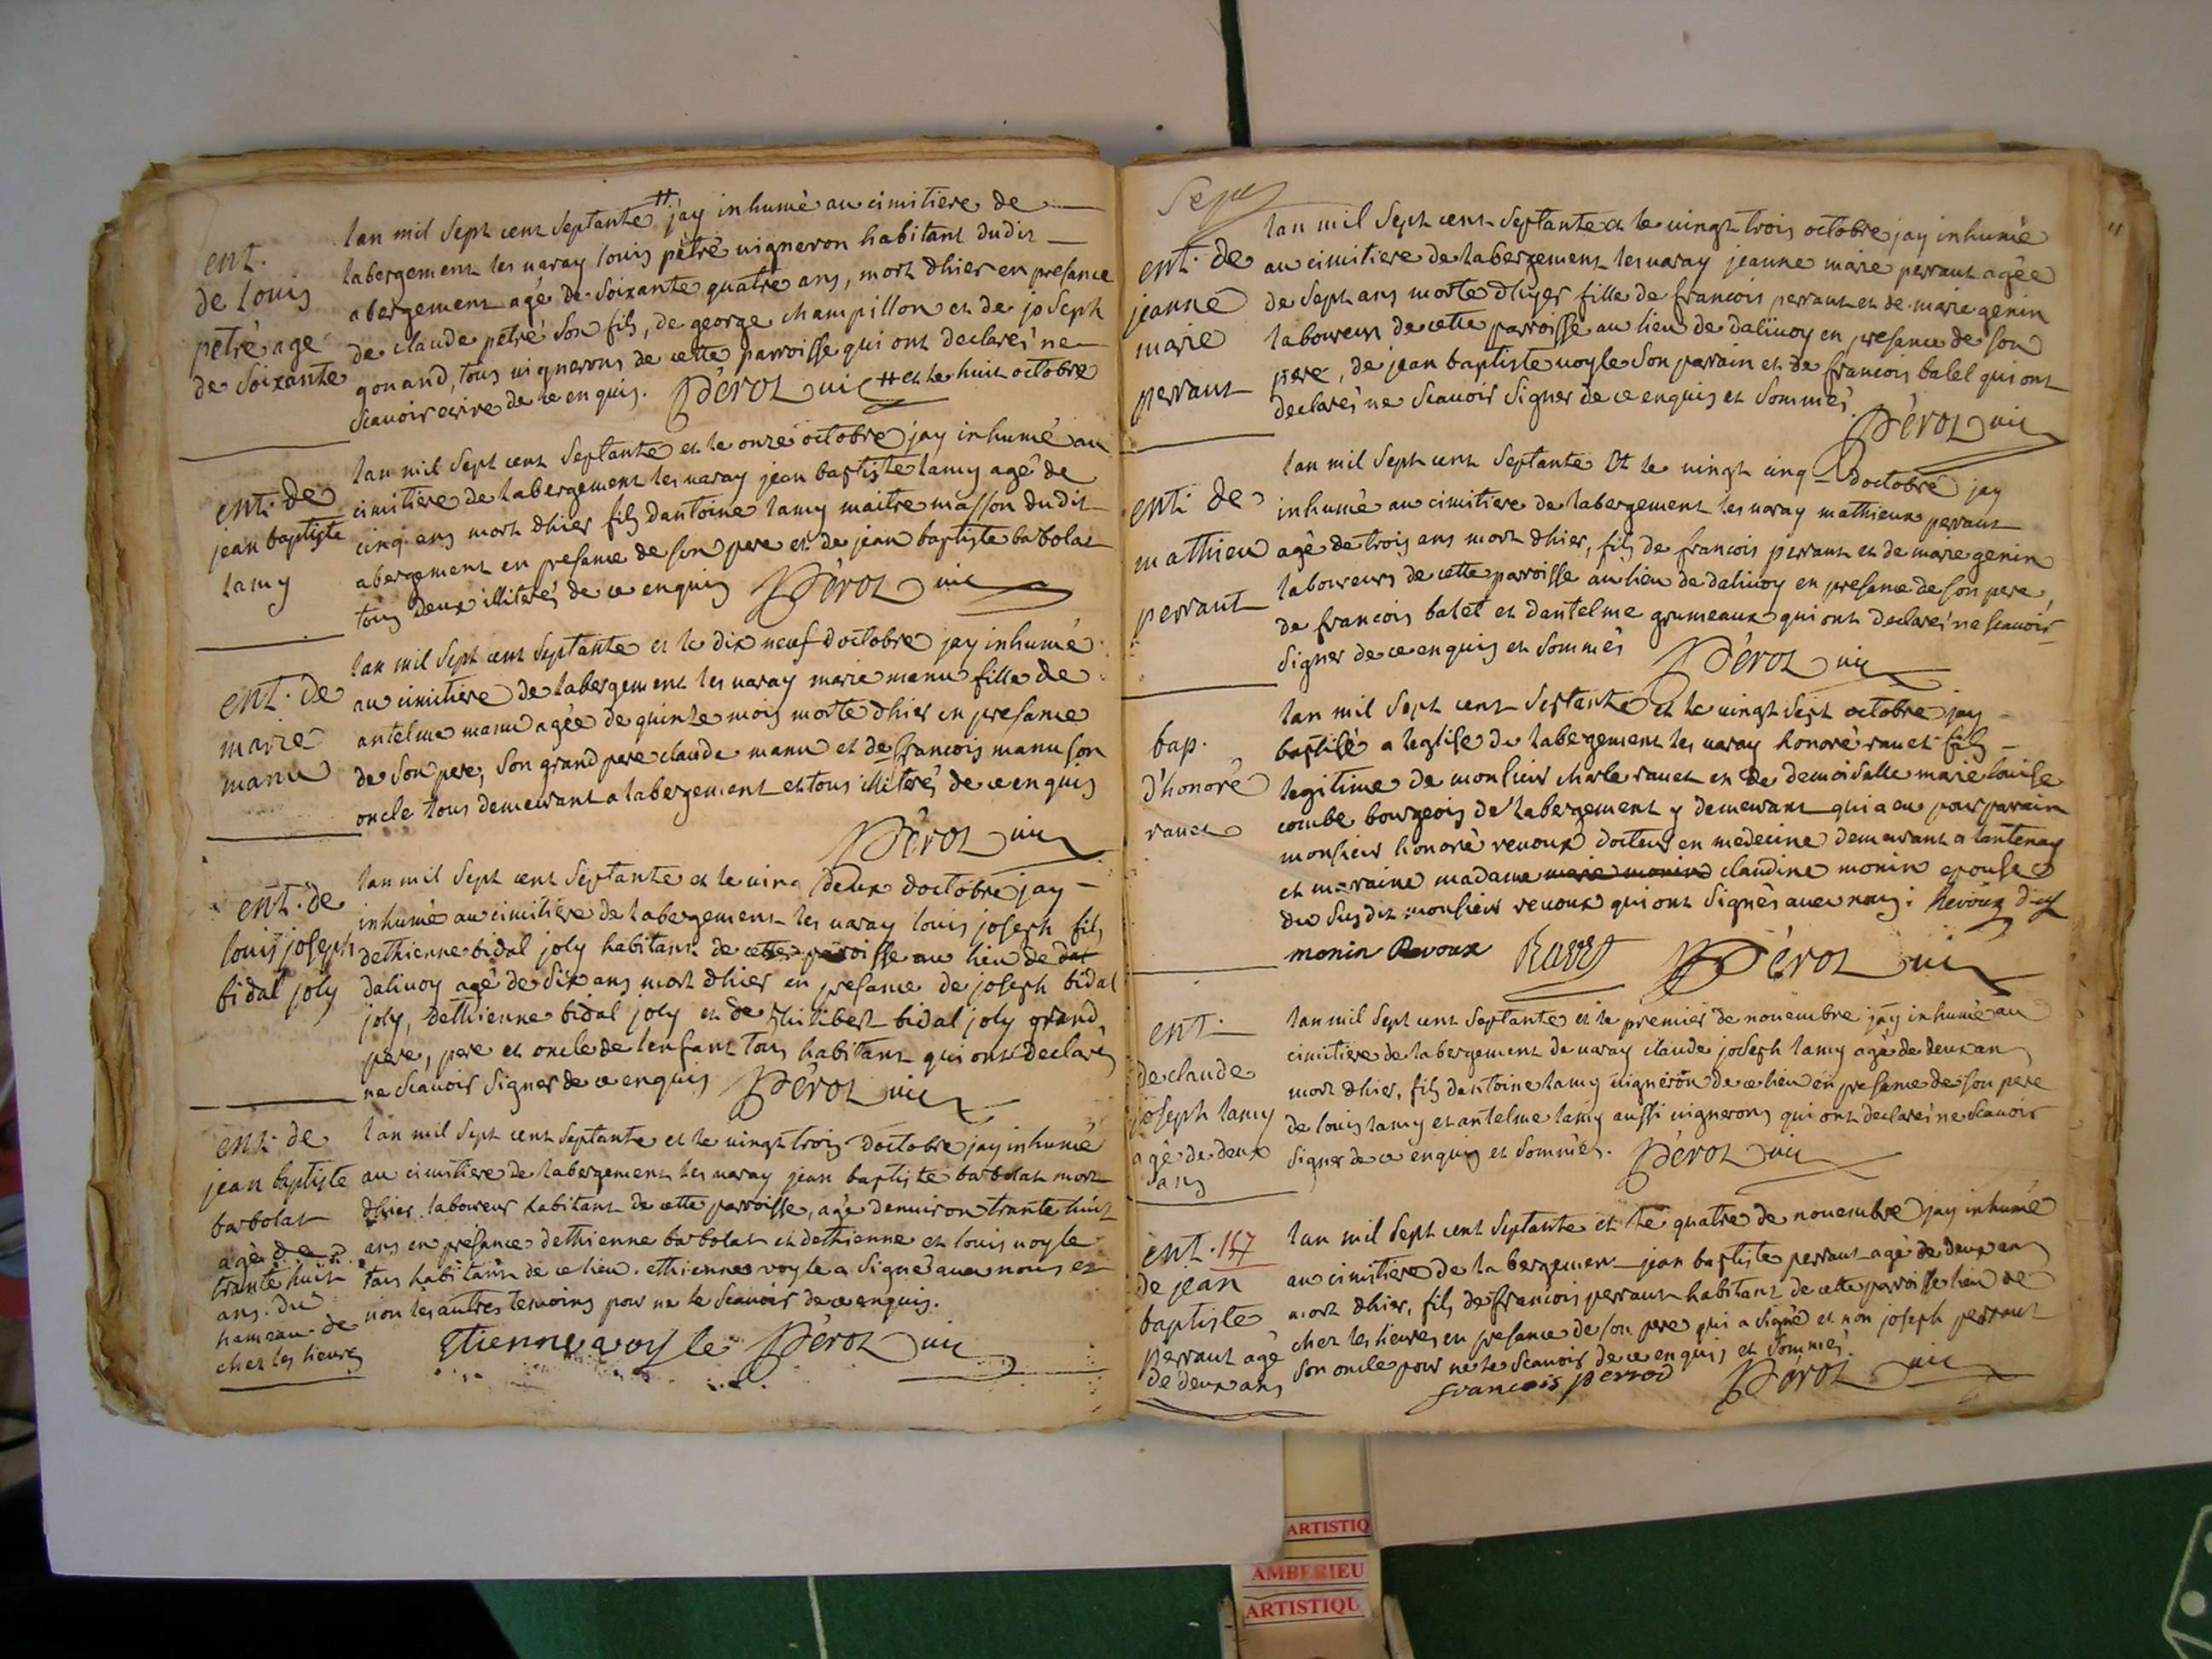 ent.
de louis
petré agé
de soixante
lan mil sept cent septante # jay inhumé au cimitiere de
labergement les varay louis petré vigneron habitant dudit
abergement agé de soixante quatre ans, mort dhier en presance
de claude petré son fils, de george champillon et de joseph
gonand, tous vignerons de cette parroisse qui ont declarés ne
scavoir ecrire de ce enquis. Pérot vic # et le huit octobre
ent. de
jean baptiste
lamy
lan mil sept cent septante et le onze octobre jay inhumé au
cimitiere de labergement les varay jean baptiste lamy agé de
cinq ans mort dhier fils dantoine lamy maitre masson dudit
abergement en presance de son pere et de jean baptiste babolat
tous deux illiterés de ce enquis Pérot vic
ent. de
marie
manu
lan mil sept cent septante et le dix neuf doctobre jay inhumé
au cimitiere de labergement les varay marie manu fille de
antelme manu agée de quinte mois morte dhier en presance
de son pere, son grand pere claude manu et de francois manu son
oncle tous demeurant a labergement et tous illiterés de ce enquis
Pérot vic
ent. de
louis joseph
bidal joly
lan mil sept cent septante et le vinq deux doctobre jay
inhumé au cimitiere de labergement les varay louis joseph fils
dethienne bidal joly habitant de cette parroisse au lieu de dal
dalivoy agé de six ans mort dhier en presance de joseph bidal
joly, dethienne bidal joly et de philibert bidal joly grand
pere, pere et oncle de lenfant tous habitant qui ont declarés
ne scavoir signer de ce enquis Pérot vic
ent. de
jean baptiste
barbolat
agé de
trante huit
ans. du
hameau de
chez les lievres
lan mil sept cent septante et le vingt trois doctobre jay inhumé
au cimitiere de labergement les varay jean baptiste barbolat mort
dhier laboureur habitant de cette parroisse, agé denviron trante huit
ans en presance dethienne barbolat et dethienne et louis voyle
tous habitant de ce lieu. ethienne voyle a signé avec nous et
non les autres temoins pour ne le scavoir de ce enquis.
Etienne voyle Pérot vic
11
ent. de
jeanne
marie
perraut
lan mil sept cent septante et le vingt trois octobre jay inhumé
au cimitiere de labergement les varay jeanne marie perraut agée
de sept ans morte dhyer fille de francois perraut et de marie genin
laboureur de cette parroisse au lieu de dalivoy en presance de son
pere, de jean baptiste voyle son parrain et de francois balet qui ont
declarés ne scavoir signer de ce enquis et sommés
Pérot vic
ent. de
mathieu
perraut
lan mil sept cent septante et le vingt cinq doctobre jay
inhumé au cimitiere de labergement les varay mathieu perraut
agé de trois ans mort dhier, fils de francois perraut et de marie genin
laboureurs de cette parroisse au lieu de dalivoy en presance de son pere,
de francois balet et dantelme grumeaux qui ont declarés ne scavoir
signer de ce enquis et sommés Pérot vic
bap.
d'honoré
ravet
lan mil sept cent septante et le vingt sept octobre jay
baptisé a leglise de labergement les varay honoré ravet fils
legitime de monsieur charle ravet et de demoiselle marie louise
combe bourgeois de labergement y demeurant qui a eu pour parain
monsieur honoré revoux docteur en medecine demeurant a lantenay
et maraine madame marie monin claudine monin epouse
du susdit monsieur revoux qui ont signés avec nous. Revoux
monin Revoux Ravet Pérot vic
ent.
de claude
joseph lamy
agé de deux
ans
lan mil sept cent septante et le premier de novembre jay inhumé au
cimitiere de labergement de varay claude joseph lamy agé de deux an
mort dhier, fils dantoine lamy vigneron de ce lieu en presance de son pere
de louis lamy et antelme lamy aussi vignerons qui ont declarés ne scavoir
signer de ce enquis et sommés. Pérot vic
ent. 147
de jean
baptiste
perraut agé
de deux ans
lan mil sept cent septante et le quatre de novembre jay inhumé
au cimitiere de labergement jean baptiste perraut agé de deux ans
mort dhier, fils de francois perraut habitant de cette parroisse lieu de
chez les lievres en presance de son pere qui a signé et non joseph perraut
son oncle pour ne le scavoir de ce enquis et sommés.
francois perrod Pérot vic
ARTISTIQ
AMBERIEU
ARTISTIQU